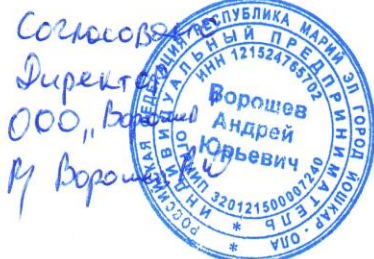 Согласовано
Директор
ООО „Ворошев"
Ворошев
РОССИЙСКАЯ ФЕДЕРАЦИЯ РЕСПУБЛИКА МАРИЙ ЭЛ ГОРОД ЙОШКАР-ОЛА
ИНДИВИДУАЛЬНЫЙ ПРЕДПРИНИМАТЕЛЬ
ИНН 121524765702
Ворошев
Андрей
Юрьевич
320121500007240